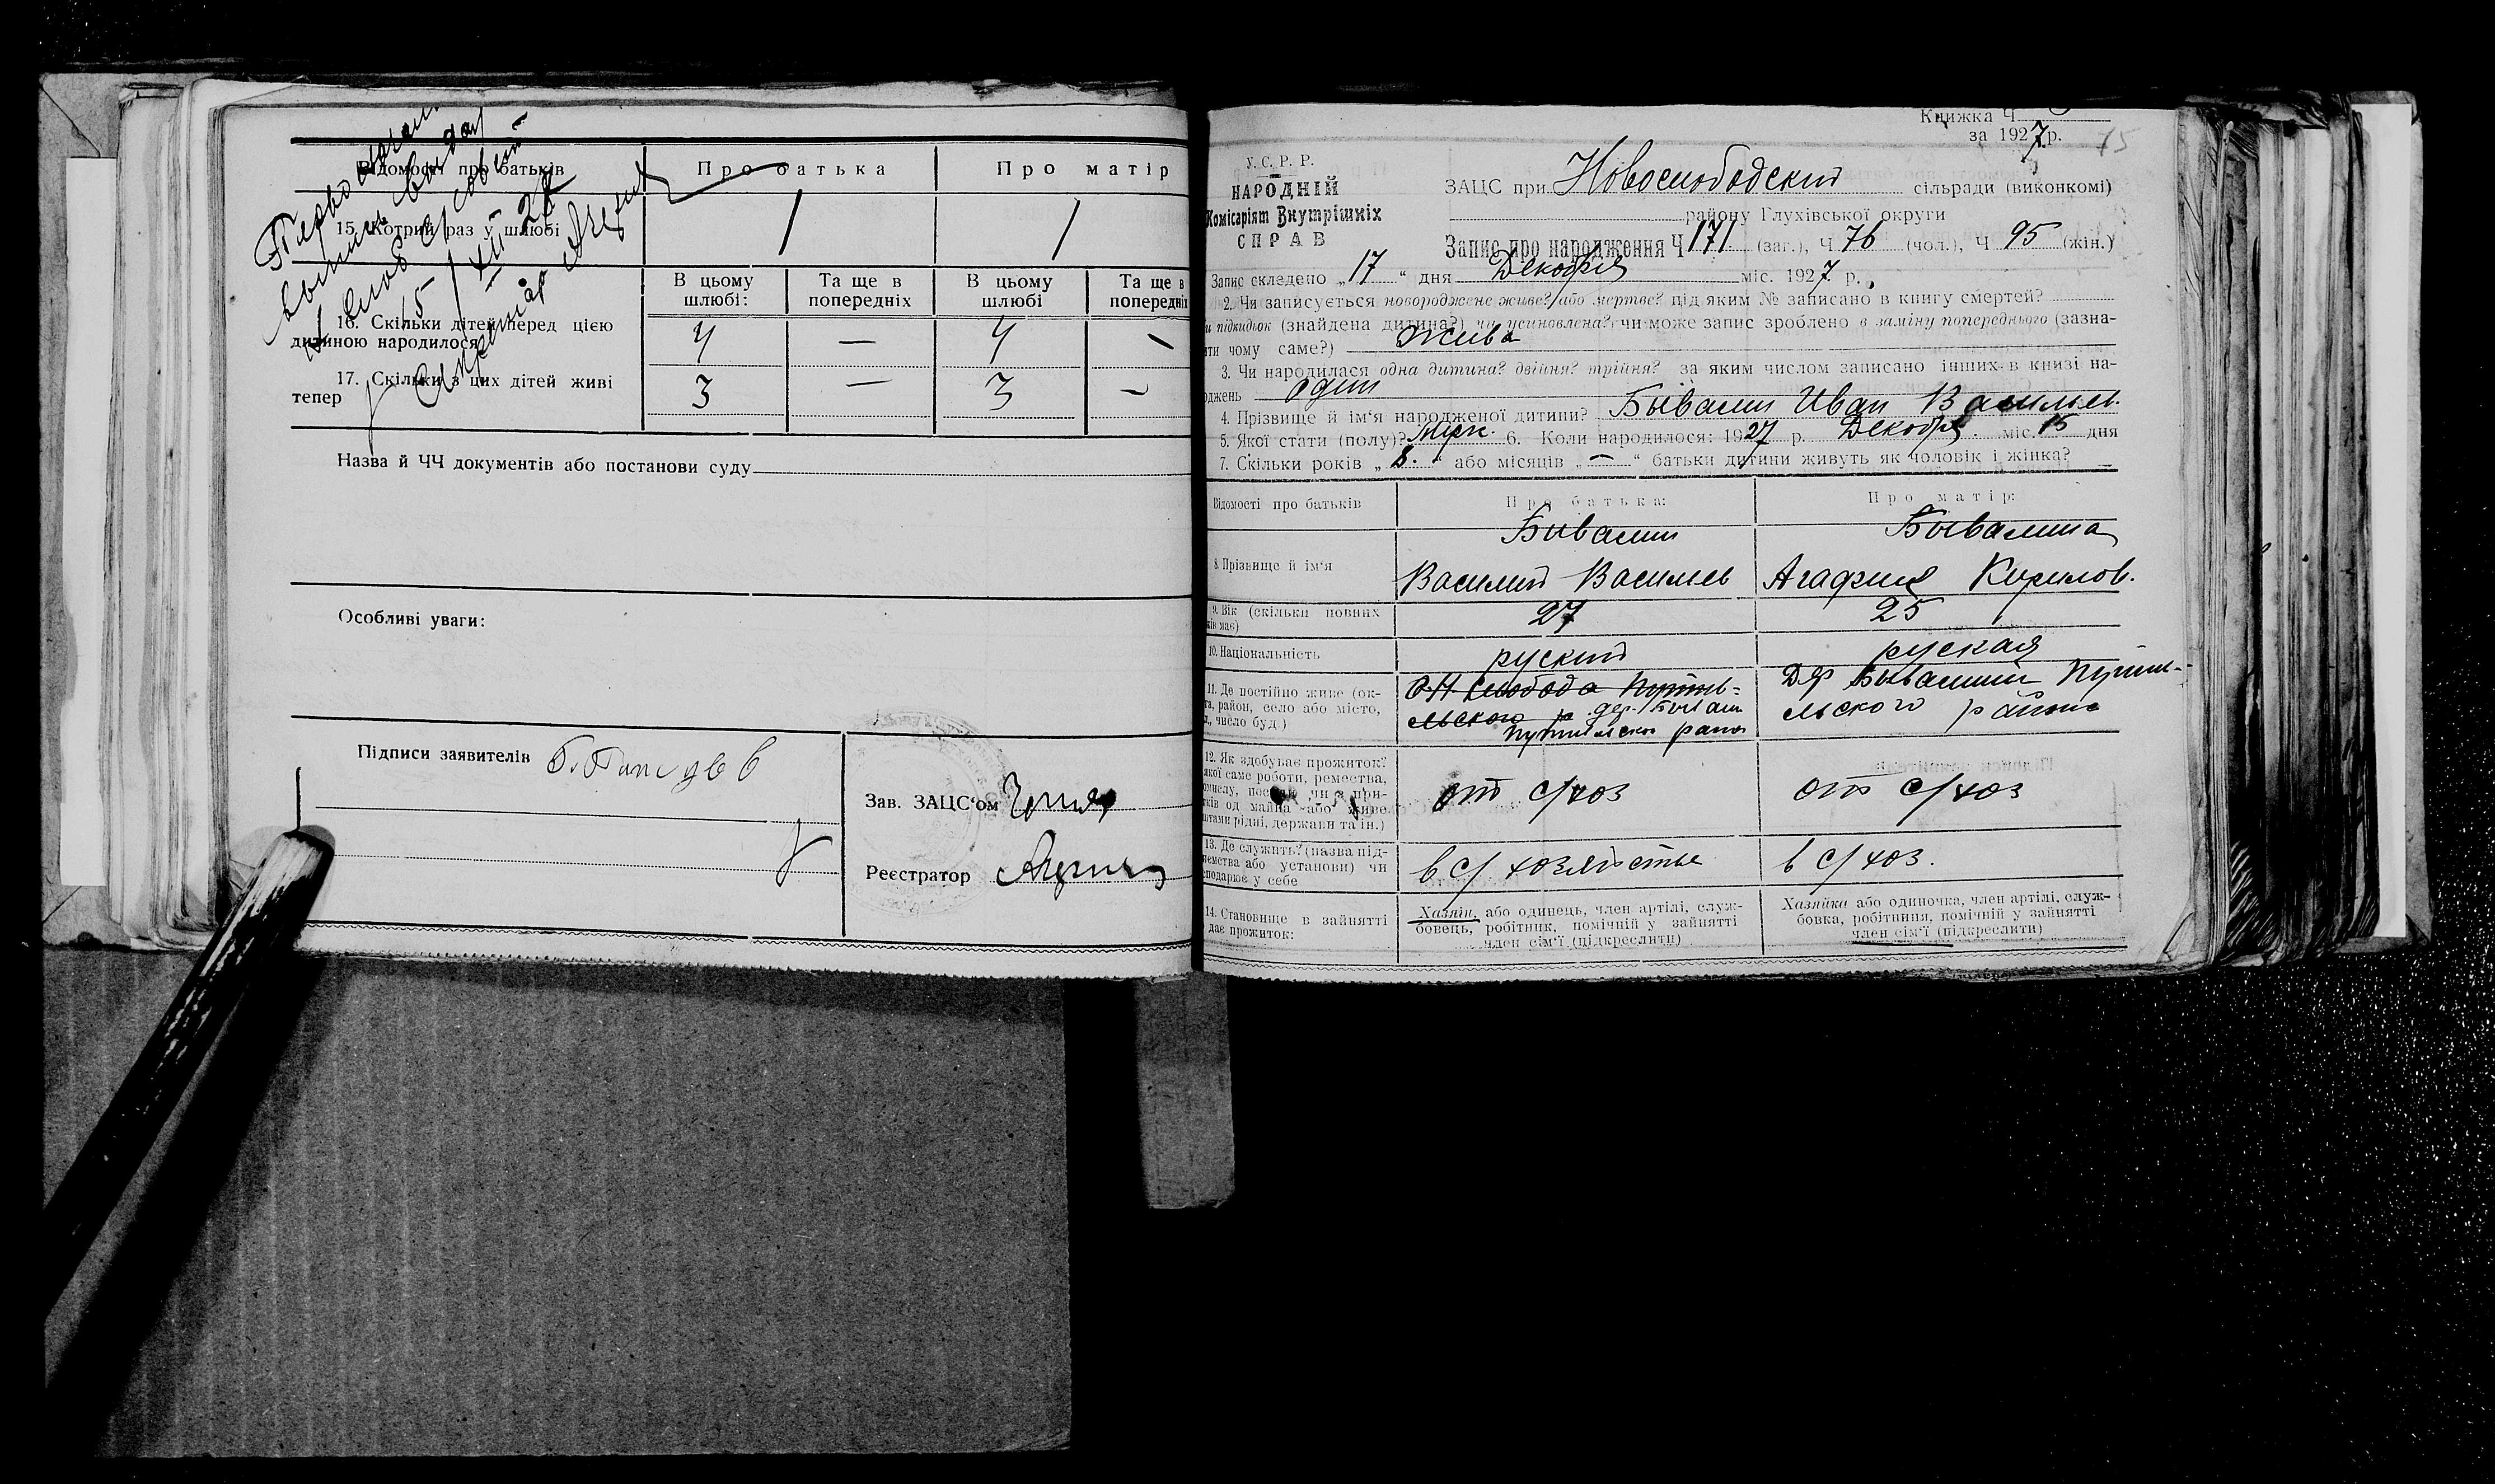 Відомості про батьків
Про батька
Про матір
15. Котрий раз у шлюбі
1
1
В цьому шлюбі:
Та ще в попередніх
В цьому шлюбі
Та ще в попередніх
16. Скільки дітей перед цією
дитиною народилося
4 — 4 —
17. Скільки з цих дітей живі
тепер
3 — 3 —
15/XII 27
Назва й ЧЧ документів або постанови суду
Особливі уваги:
Підписи заявителів
Зав. ЗАЦС‘ом
Реєстратор
Книжка Ч
за 1927 р.
75
У.С.Р.Р.
НАРОДНІЙ
Комісаріят Внутрішніх
СПРАВ
ЗАЦС при Новослободский сільради (виконкомі)
району Глухівської округи
Запис про народження Ч 171 (заг.), Ч 76 (чол.), Ч 95 (жін.)
Запис складено „17“ дня Декабря міс. 1927 р.
2. Чи записується новороджене живе? або мертве? під яким № записано в книгу смертей?
підкидьок (знайдена дитина?) чи усиновлена? чи може запис зроблено в заміну попереднього (зазна-
ити чому саме?) Жива
3. Чи народилася одна дитина? двійня? трійня? за яким числом записано інших в книзі на-
роджень один
4. Прізвище й ім‘я народженої дитини? Бывалин Иван Васильев.
5. Якої стати (полу)? муж. 6. Коли народилося: 1927 р. Декабря міс. 15 дня
7. Скільки років „8.“ або місяців „—“ батьки дитини живуть як чоловік і жінка? —
Відомості про батьків
Про батька:
Про матір:
8. Прізвище й ім‘я
Бывалин
Василий Васильев
Бывалина
Агафия Кирилов.
9. Вік (скільки повних
років має)
27
25
10. Національність
руский
руская
11. Де постійно живе (ок-
руга, район, село або місто,
вул., число буд.)
Н Слобода Путив-
льского р дер. Бывалин
Путивльского района
Др Бывалины Путив-
льского района
12. Як здобуває прожиток?
якої саме роботи, ремества,
промислу, посади, чи з при-
бутків од майна або живе
коштами рідні, держави та ін.)
от с/хоз
от с/хоз
13. Де служить? (назва під-
приємства або установи) чи
господарює у себе
в с/хозяйстве
в с/хоз.
14. Становище в зайнятті
що дає прожиток:
Хазяїн, або одинець, член артілі, служ-
бовець, робітник, помічній у зайнятті
член сім‘ї (підкреслити)
Хазяйка або одиночка, член артілі, служ-
бовка, робітниця, помічній у зайнятті
член сім‘ї (підкреслити)